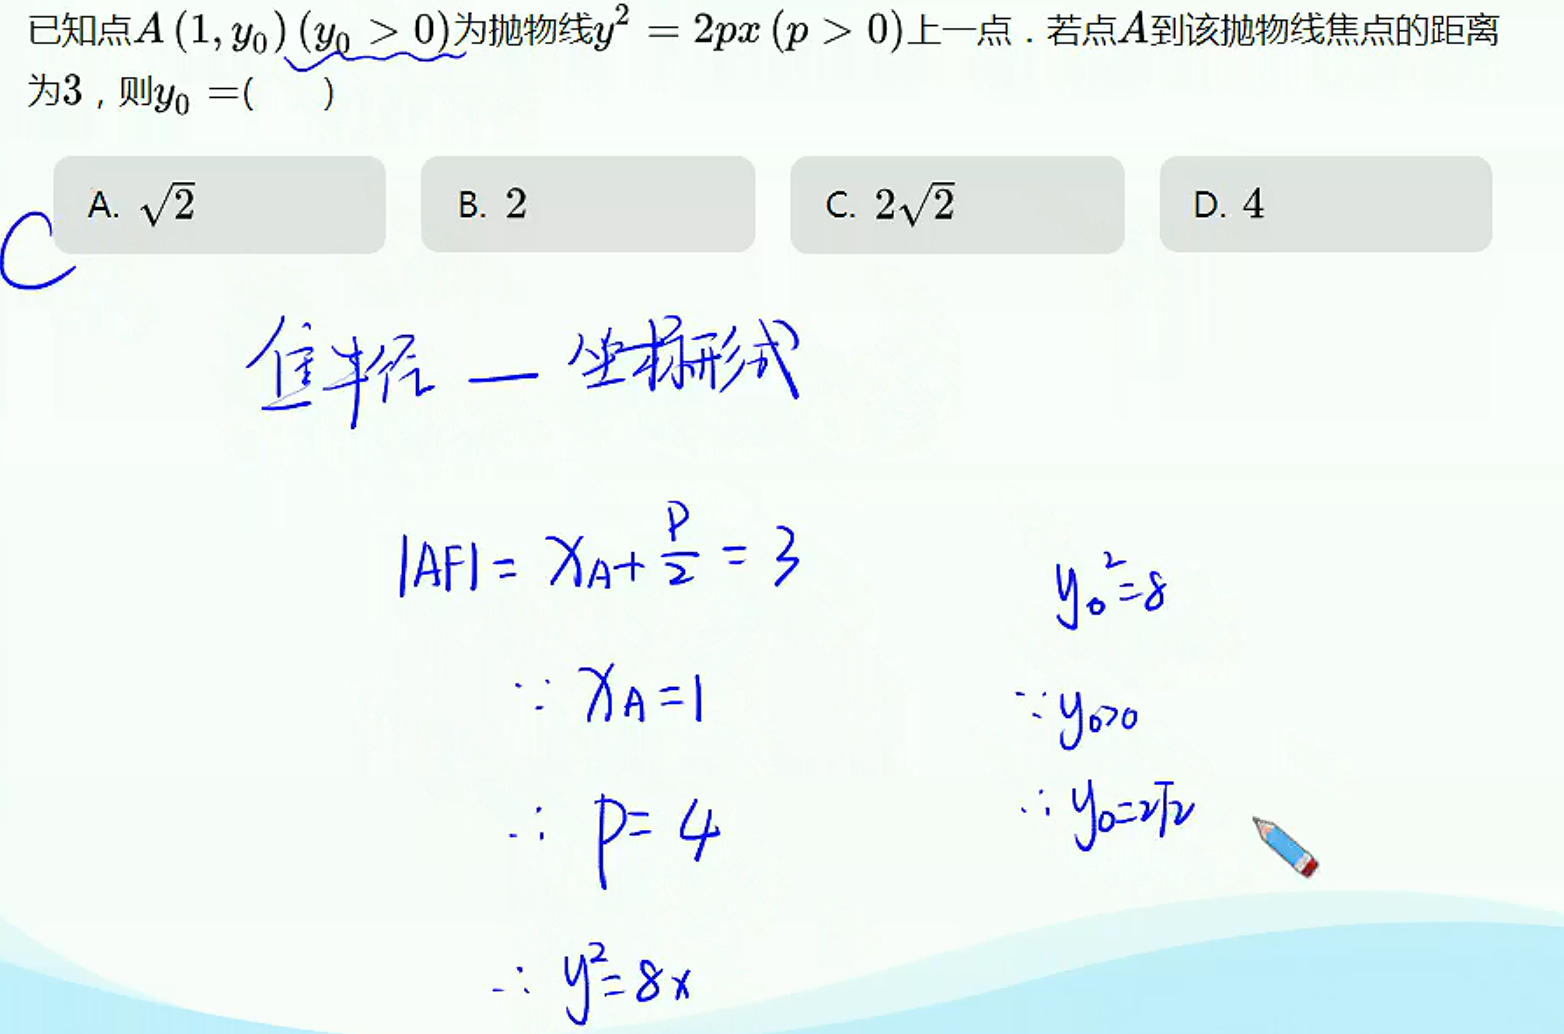 已知点A(1, y₀)(y₀ > 0)为抛物线y² = 2px (p > 0)上一点．若点A到该抛物线焦点的距离
为3，则y₀ =(　　)
A. √2 B. 2 C. 2√2 D. 4
C
焦半径 — 坐标形式
|AF| = x_A + p/2 = 3
∵ x_A = 1
∴ p = 4
∴ y² = 8x
y₀² = 8
∵ y₀>0
∴ y₀ = 2√2